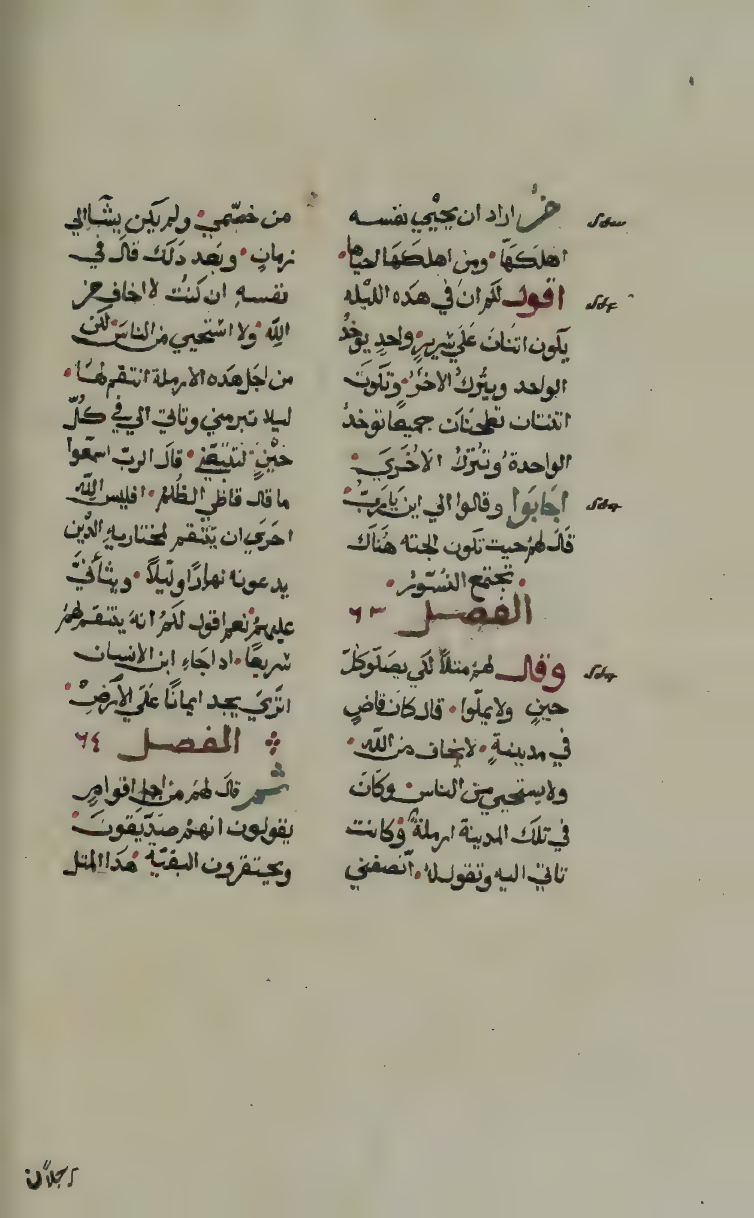 من اراد ان يحيي نفسه
اهلكها ومن اهلكها احياها
اقول لكم ان في هده الليله
يكون اتنان علي سرير واحد يوخد
الواحد ويترك الاخر وتكون
اتنتان تطحنان جميعا توخد
الواحدة وتترك الاخري
اجابوا وقالوا الي اين يارب
قال لهم حيت تكون الجته هناك
تجتمع النسور
الفصل ٦٣
وقال لهم متلا لكي يصلوا كل
حين ولا يملوا قال كان قاض
في مدينة لا يخاف من الله
ولا يستحيي من الناس وكان
في تلك المدينة ارملة وكانت
تاتي اليه وتقول له انصفني
من خصمي ولم يكن يشا الي
زمان وبعد دلك قال في
نفسه ان كنت لا اخاف من
الله ولا استحيي من الناس لكن
من اجل هده الارملة انتقم لها
ليلا تبرمني وتاتي الي في كل
حين لتتبعني قال الرب اسمعوا
ما قال قاضي الظلم افليس الله
احري ان ينتقم لمختاريه الدين
يدعونه نهارا وليلا ويتأني
عليهم نعم اقول لكم انه ينتقم لهم
سريعا ادا جاء ابن الانسان
اتري يجد ايمانا علي الأرض
الفصل ٦٤
ثم قال لهم من اجل اقوام
يقولون انهم صديقون
ويحتقرون البقية هدا المتل
رجلان